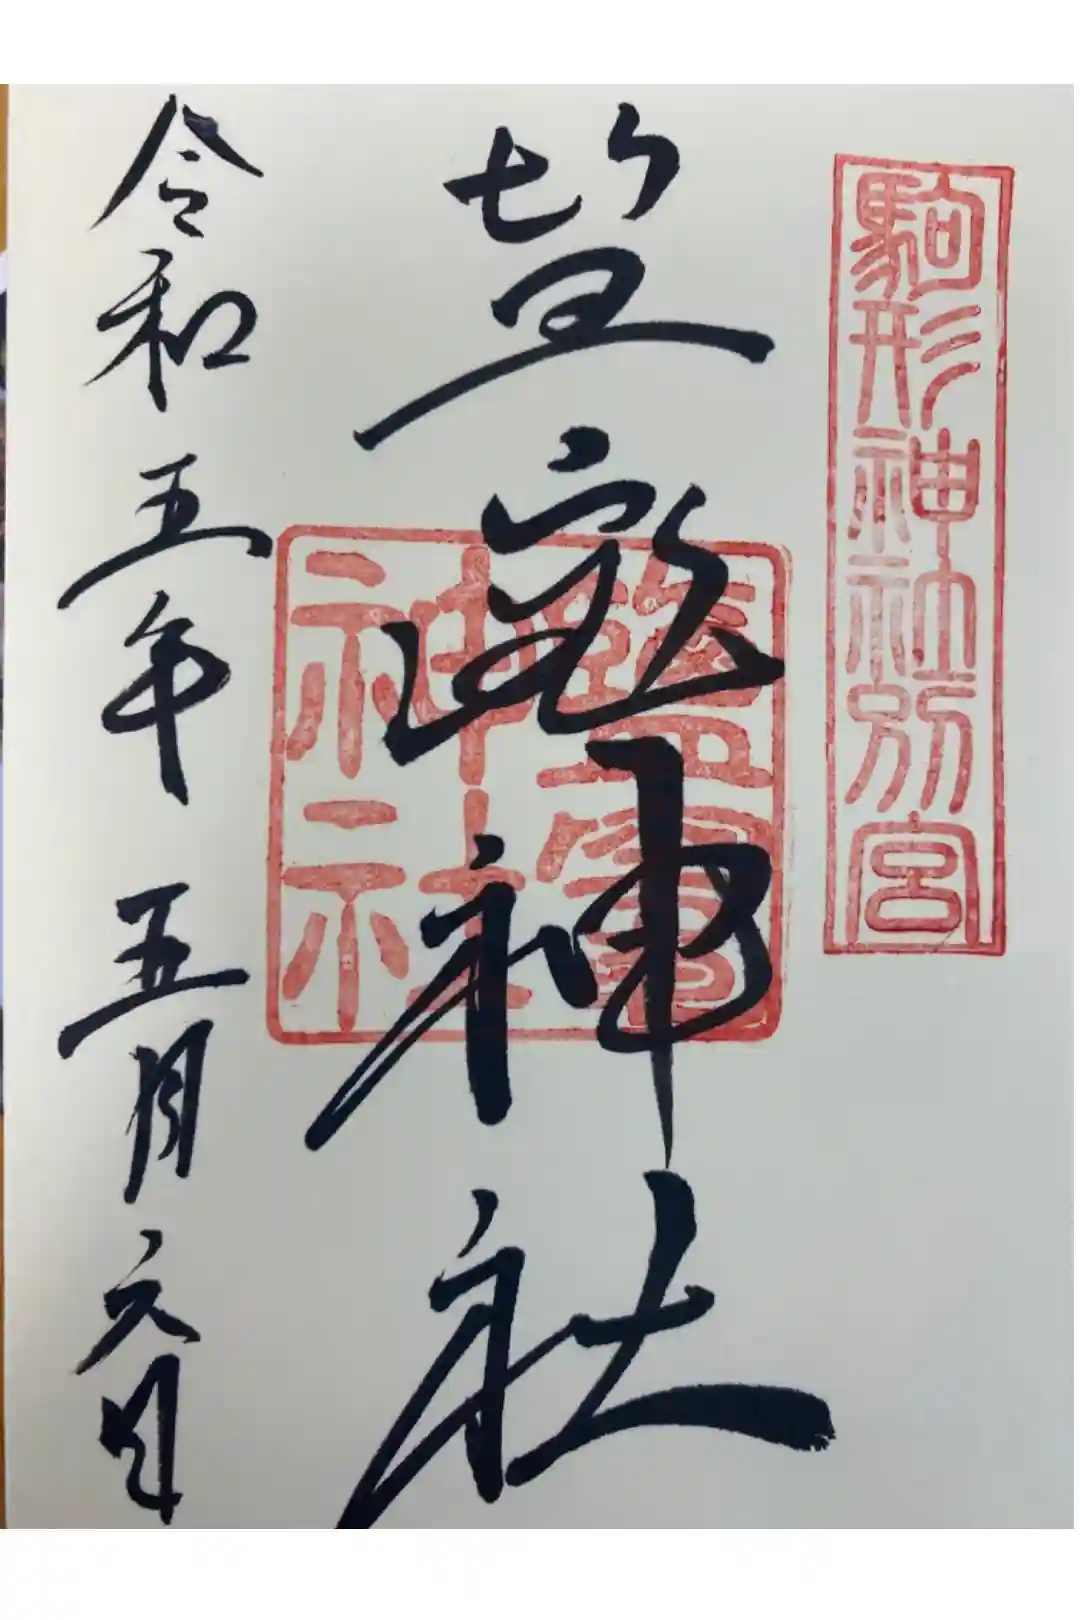 駒形神社別宮
鹽竈神社
鹽竈神社
令和五年 五月六日